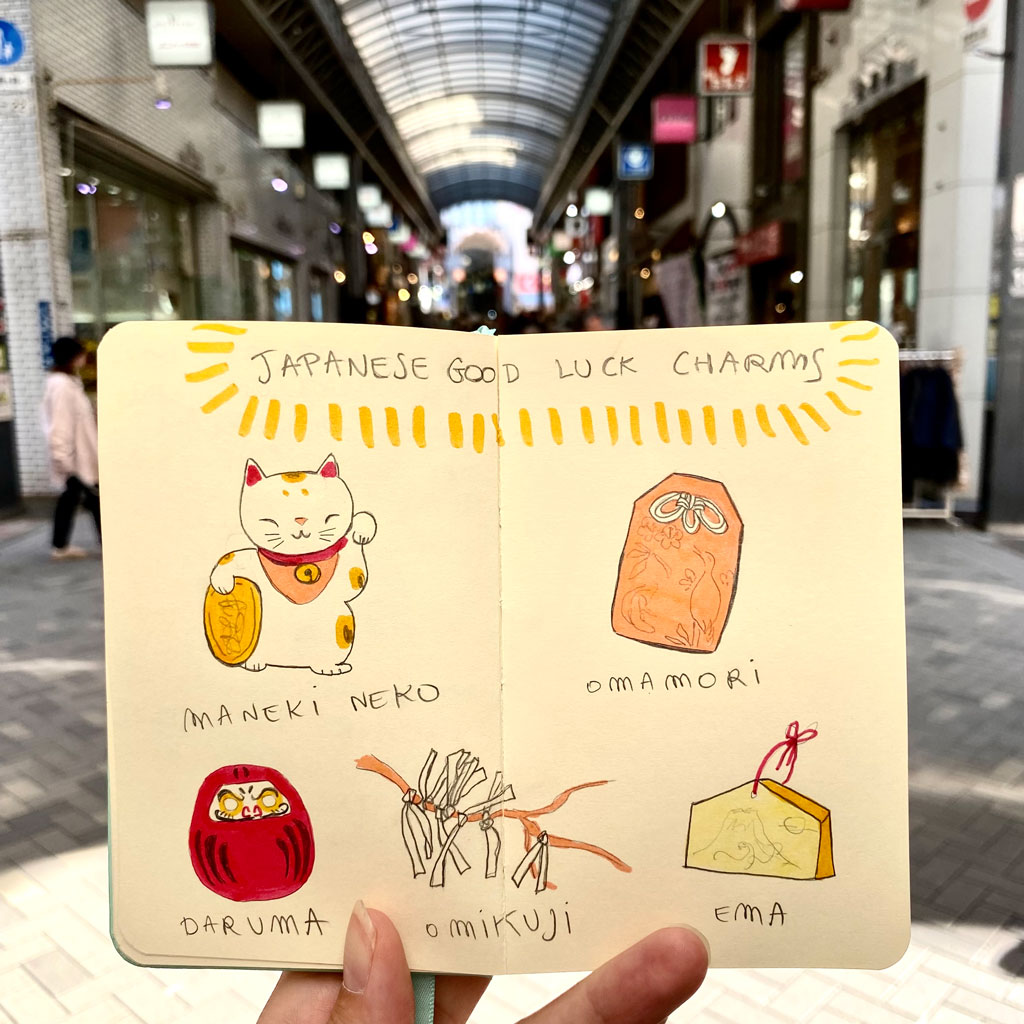 JAPANESE GOOD LUCK CHARMS
MANEKI NEKO
OMAMORI
DARUMA
OMIKUJI
EMA